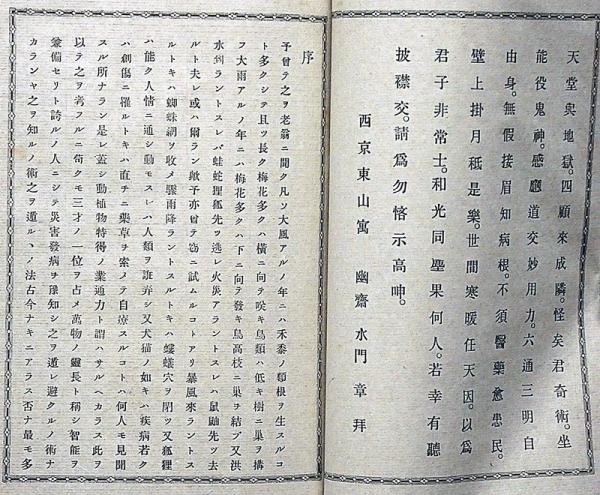 天堂與地獄。四顧來成隣。怪矣君奇術。坐
能役鬼神。感應道交妙用力。六通三明自
由身。無假接眉知病根。不須醫藥愈患民。
壁上掛月秪是樂。世間寒暖任天因。以爲
君子非常士。和光同塵果何人。若幸有聽
披襟交。請爲勿悋示高呻。
西京東山寓 幽齋 水門 章 拜
序
予曾テ之ヲ老翁ニ聞ク凡ソ大風アルノ年ニハ禾黍ノ類根ヲ生スルコ
ト多クシテ且ツ長ク梅花多クハ橫ニ向テ咲キ鳥類ハ低キ樹ニ巢ヲ搆
フ大雨アルノ年ニハ梅花多クハ下ニ向テ發キ鳥高枝ニ巢ヲ結フ又洪
水到ラントスレバ蛙蛇狸狐先ッ逃レ火災アラントスレハ鼠鼬先ッ去
ルト夫レ或ハ爾ラン歟予亦曾テ窃ニ試ムルコトアリ暴風來ラントス
ルトキハ蜘蛛網ヲ收メ驟雨降ラントスルトキハ螻蟻穴ヲ閉ッ又狐狸
ハ能ク人情ニ通シ動モスレハ人類ヲ誑弄シ又犬猫ノ如キハ疾病若ク
ハ創傷ニ罹ルトキハ直チニ藥草ヲ索メテ自療スルコトハ何人モ見聞
スル所ナラン是レ蓋シ動植物特得ノ業通力ト謂ハサルヘカラス此ヲ
以テ之ヲ考フルニ苟クモ三才ノ一位ヲ占メ萬物ノ靈長ト稱シ智能ヲ
兼備セリト誇ルノ人ニシテ災害發病ヲ豫知シ之ヲ遁レ避クルノ術ナ
カランヤ之ヲ知ルノ術之ヲ遁ルヽノ法古今ナキニアラス否ナ最モ多